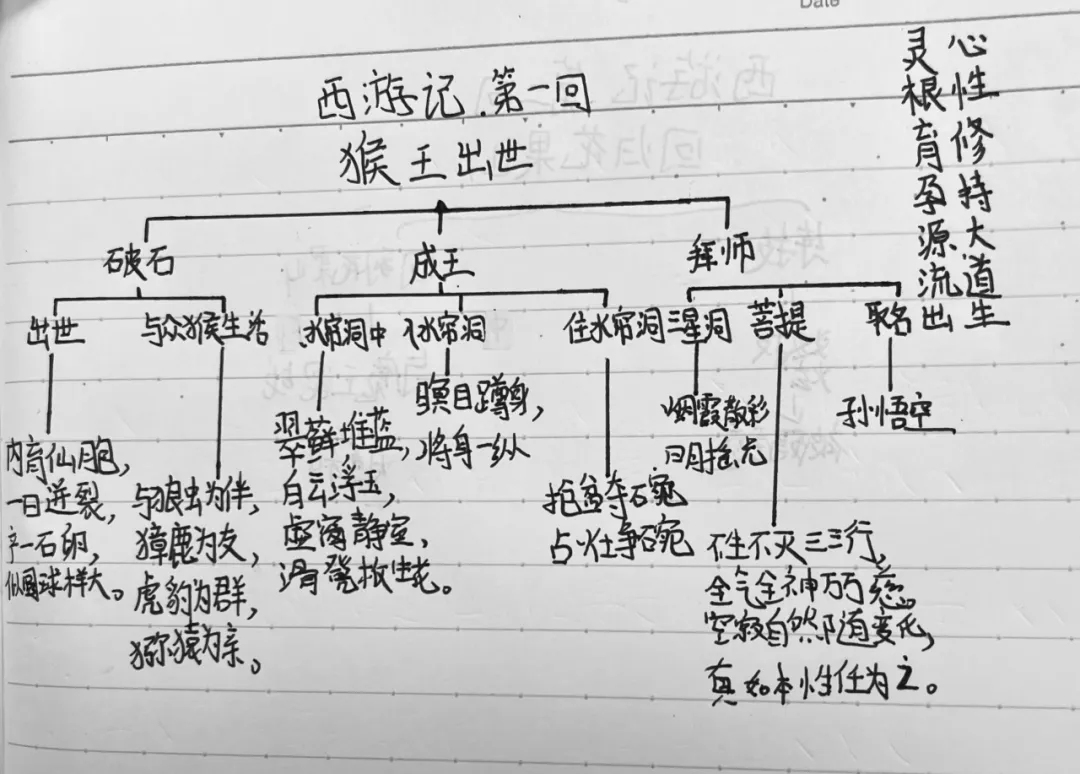 Date
西游记.第一回
猴王出世
灵根育孕源流出
心性修持大道生
破石
成王
拜师
出世
与众猴生活
水帘洞中
水帘洞
住水帘洞
三星洞
菩提
取名
内育仙胞,
一日迸裂,
产一石卵,
似圆球样大。
与狼虫为伴,
獐鹿为友,
虎豹为群,
猕猿为亲。
翠藓堆蓝,
白云浮玉,
虚窗静室,
滑凳板生花。
瞑目蹲身,
将身一纵
抢盆夺石碗
占灶争石碗
烟霞散彩
日月摇光
不生不灭三三行,
全气全神万万慈。
空寂自然随变化,
真如本性任为之。
孙悟空